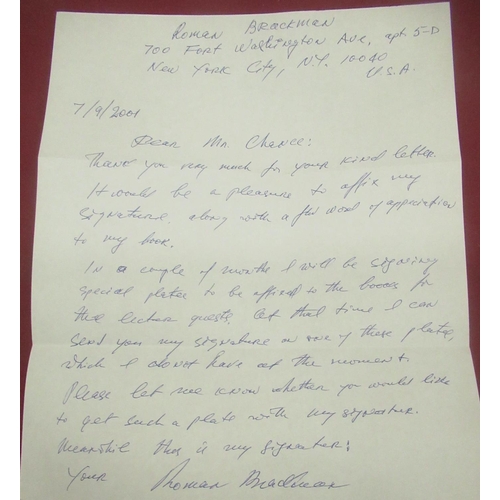 Roman Brackman
700 Fort Washington Ave, apt 5-D
New York City, N.Y. 10040
U.S.A.
7/9/2001
Dear Mr. Chance:
Thank you very much for your kind letter.
It would be a pleasure to affix my
signature, along with a few word of appreciation
to my book.
In a couple of months I will be signing
special plates to be affixed to the books for
the lecture guests. At that time I can
send you my signature on one of these plates,
which I do not have at the moment.
Please let me know whether you would like
to get such a plate with my signature.
Meanwhile this is my signature:
Your Roman Brackman